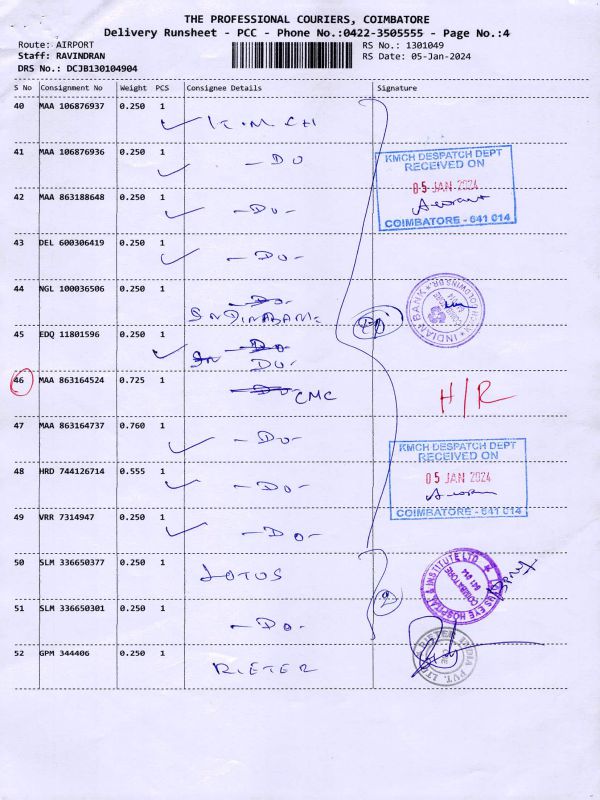 THE PROFESSIONAL COURIERS, COIMBATORE
Delivery Runsheet - PCC - Phone No.:0422-3505555 - Page No.:4
Route: AIRPORT
RS No.: 1301049
Staff: RAVINDRAN
RS Date: 05-Jan-2024
DRS No.: DCJB130104904
S No Consignment No Weight PCS Consignee Details Signature
40 MAA 106876937 0.250 1 K.M.CH
41 MAA 106876936 0.250 1 -DO
KMCH DESPATCH DEPT
RECEIVED ON
05 JAN 2024
COIMBATORE - 641 014
42 MAA 863188648 0.250 1 -DO-
43 DEL 600306419 0.250 1 -DO-
44 NGL 100036506 0.250 1 -DO-
INDIAN BANK
45 EDQ 11801596 0.250 1 -DO
DO-
46 MAA 863164524 0.725 1 -DO- CMC
H/R
47 MAA 863164737 0.760 1 -DO-
KMCH DESPATCH DEPT
RECEIVED ON
05 JAN 2024
COIMBATORE - 641 014
48 HRD 744126714 0.555 1 -DO-
49 VRR 7314947 0.250 1 -DO-
50 SLM 336650377 0.250 1 LOTUS
2
LOTUS EYE HOSPITAL & INSTITUTE LTD
COIMBATORE
641 014
51 SLM 336650301 0.250 1 -DO-
52 GPM 344406 0.250 1 RIETER
RIETER INDIA PVT. LTD